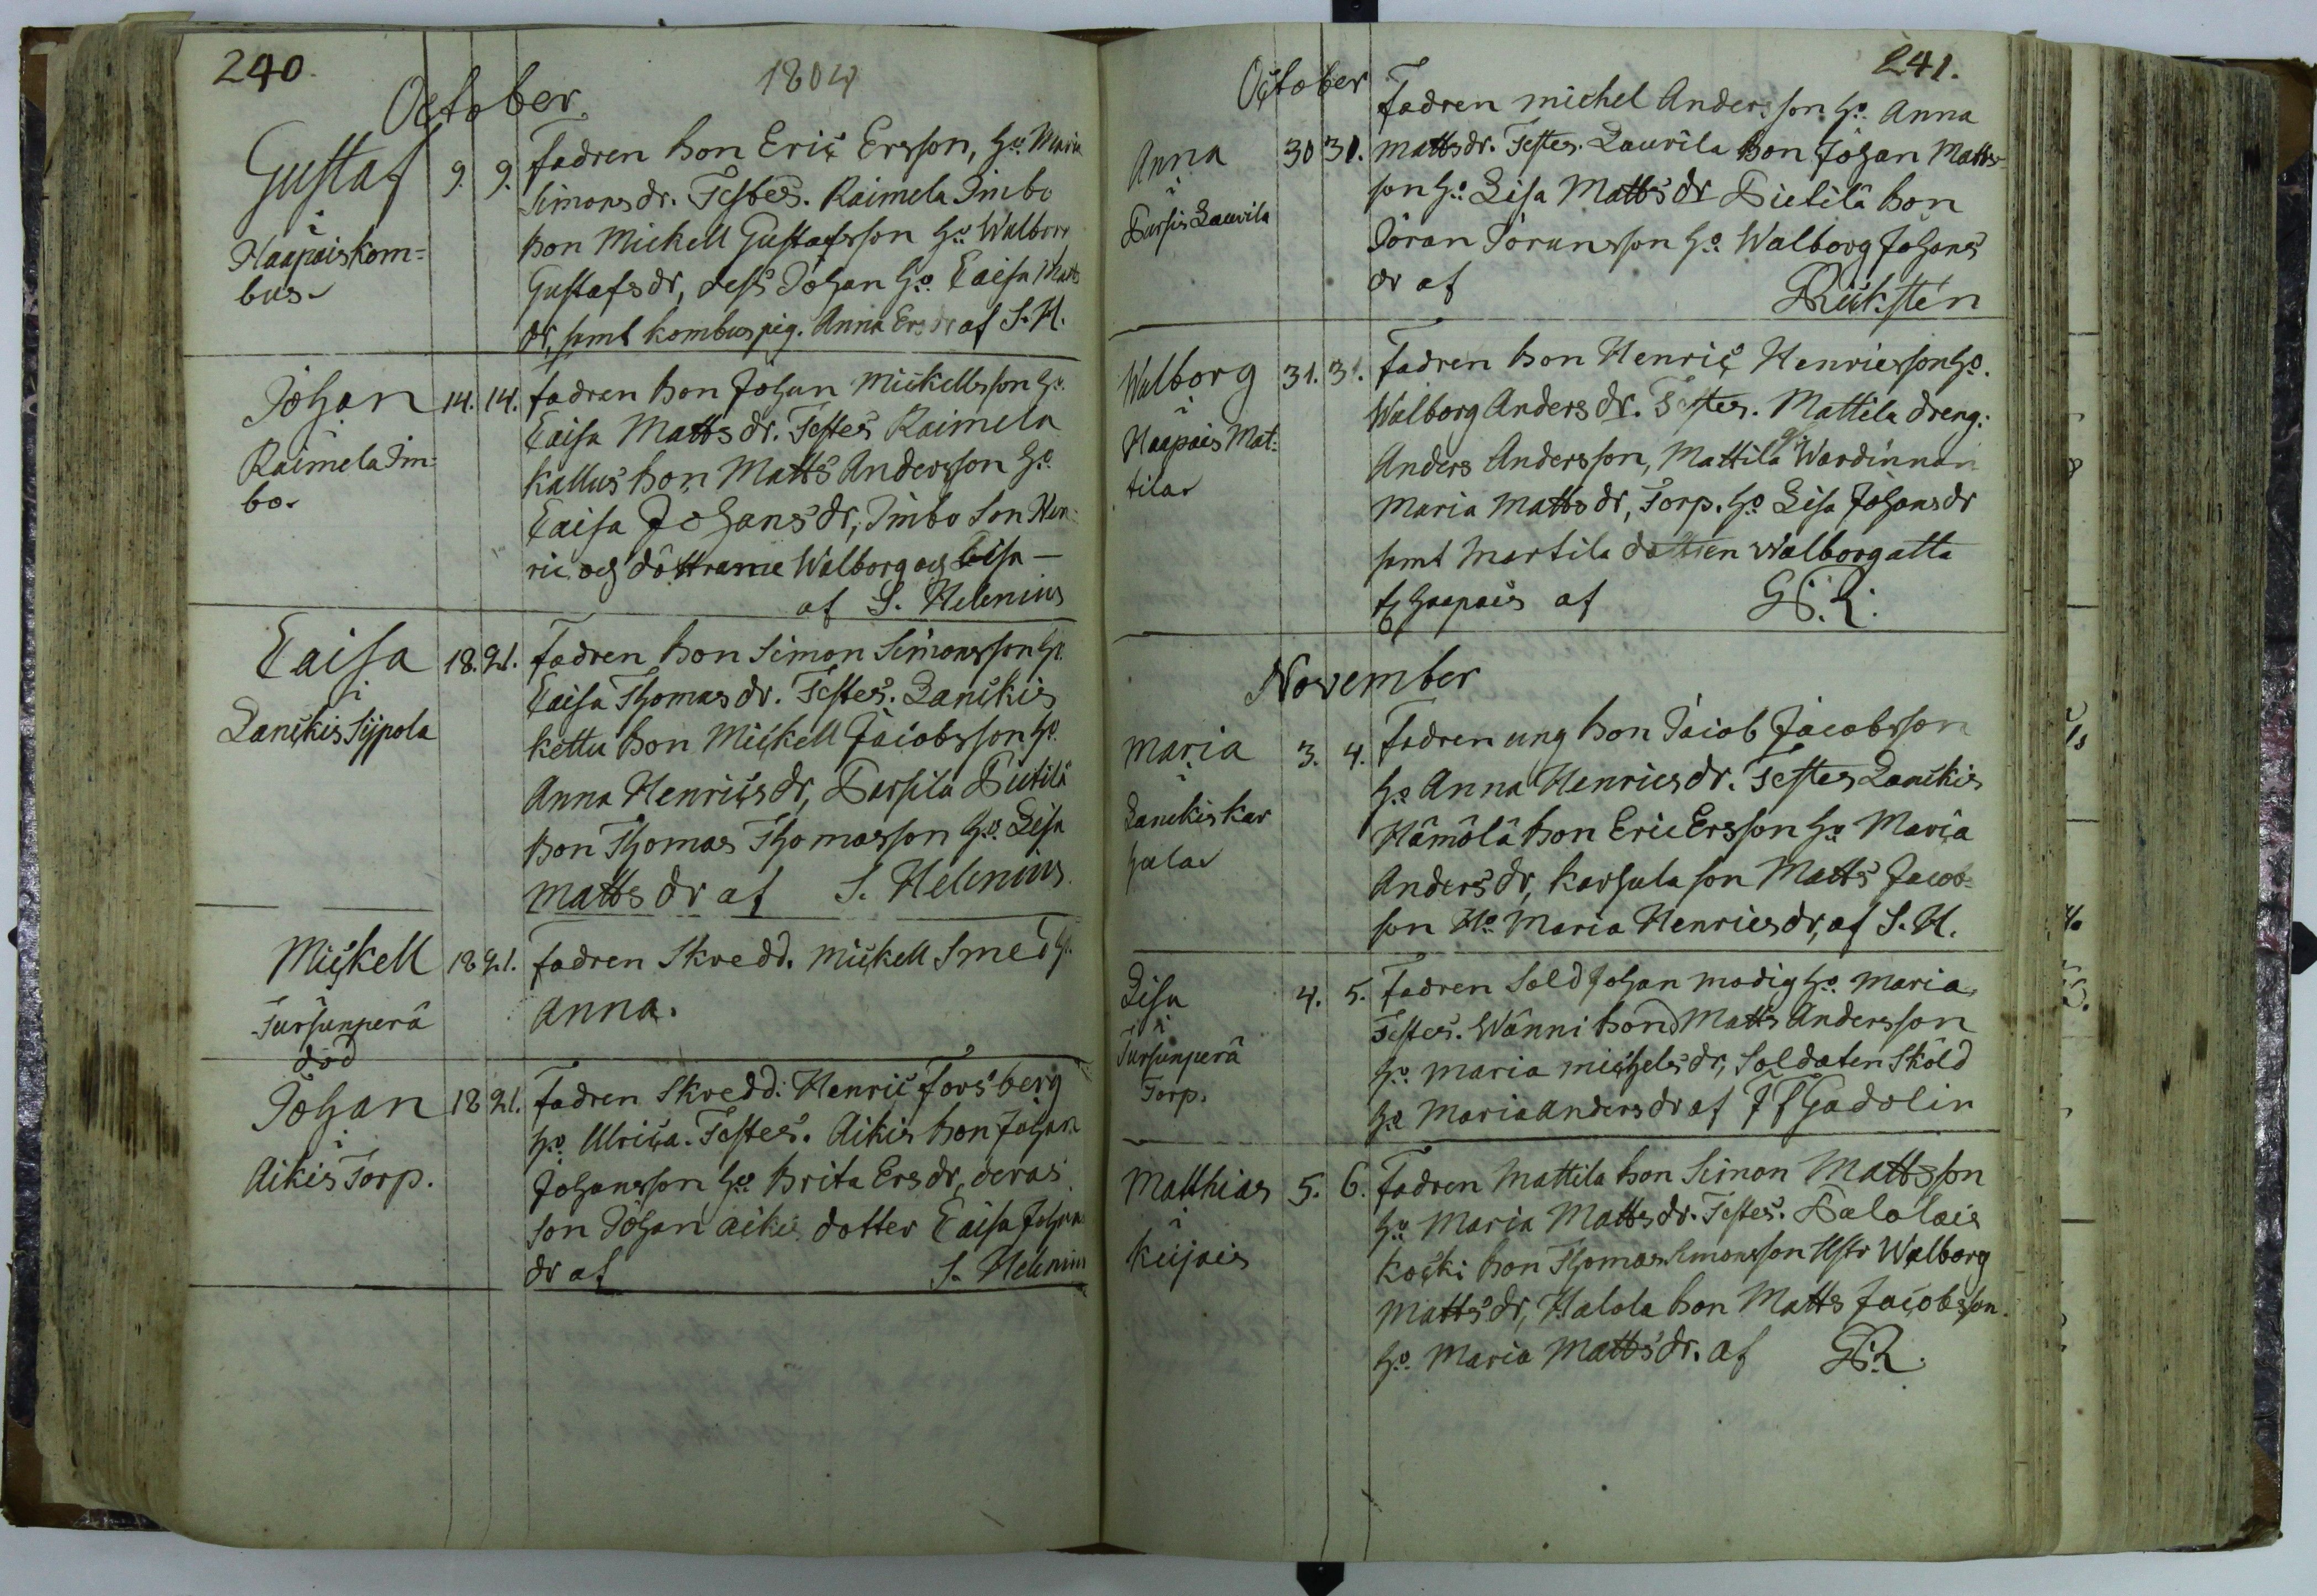 240.
1804
October
Gustaf
i
Haapais kom=
bus.
9. 9.
fadren bon Eric Ersson, h:o Maria
Simonsdr. Testes. RaimelaImbo
bon Mickell Gustafsson h:o Walborg
Gustafsdr, dess Johan h:o Caisa Matts
dr, samt kombus pig. Anna Ersdr af S. H.
Johan
Raimela Im=
bo.
14. 14.
fadren bon Johan Mickellsson h:o
Caisa Mattsdr. Testes Raimela
kallus bon Matts Andersson h:o
Caisa Johansdr, Imbo son Hen=
ric och döttrarne Walborg och Lisa —
af S. Helenius
Caisa
i
Lanckis Sypola
18. 21.
fadren bon Simon Simonsson h:o
Caisa Thomasdr. Testes. Lanckis
kettu bon Mickell Jacobsson h:o
Anna Henricsdr, Parsila Pietilä
bon Thomas Thomasson h:o Lisa
Mattsdr af S. Helenius
Mickell
Tursunperä
död
18 21.
fadren Skredd. Mickell Smed h:o
Anna.
Johan
i
Aikis Torp.
18 21.
fadren Skredd. Henric Forsberg
h:o Ulrica. Testes. Aikis bon Johan
Johansson h:o Brita Ersdr, deras
son Johan aikis dotter Caisa Johans
dr af S. Helenius
241.
October
Anna
i
Pursis Laurila
30 31.
Fadren michel Andersson h:o Anna
mattsdr. Testes. Laurila bon Johan Matts-
son h:o Lisa Mattsdr Pietilä bon
Jöran Jöransson h:o Walborg Johans
dr af
Walborg
i
Haapais Mat=
tila
31. 31.
fadren bon Henric Henricsson h:o
Walborg Andersdr. Testes. Mattila dreng.
Anders Andersson, Mattila Wärdinnan
Maria Mattsdr, Torp. h:o Lisa Johansdr
samt Martila dottren Walborg alla
fr haapais af
November
Maria
i
Lanckis kar
hula
3. 4.
Fadren ung bon Jacob Jacobsson
h:o Anna Henricsdr. Testes Lanckis
Hämölä bon Eric Ersson h:o Maria
Andersdr, karhula son Matts Jacob=
son H:o Maria Henricsdr, af S. H.
Lisa
i
Tursunperä
Torp.
4. 5.
Fadren Sold Johan modig h:o Maria,
Testes. Wänni bond Matts Andersson
h:o Maria michelsdr, Soldaten Sköld
h:o Maria Andersdr af J F Gadolin
Matthias
i
Keijais
5. 6.
Fadren Mattila bon Simon Mattsson
h:o Maria Mattsdr. Testes. Palolais
Kocki bon Thomas Simonsson Hstr Walborg
Mattsdr, Halola bon Matts Jacobsson
h:o Maria Mattsdr. af